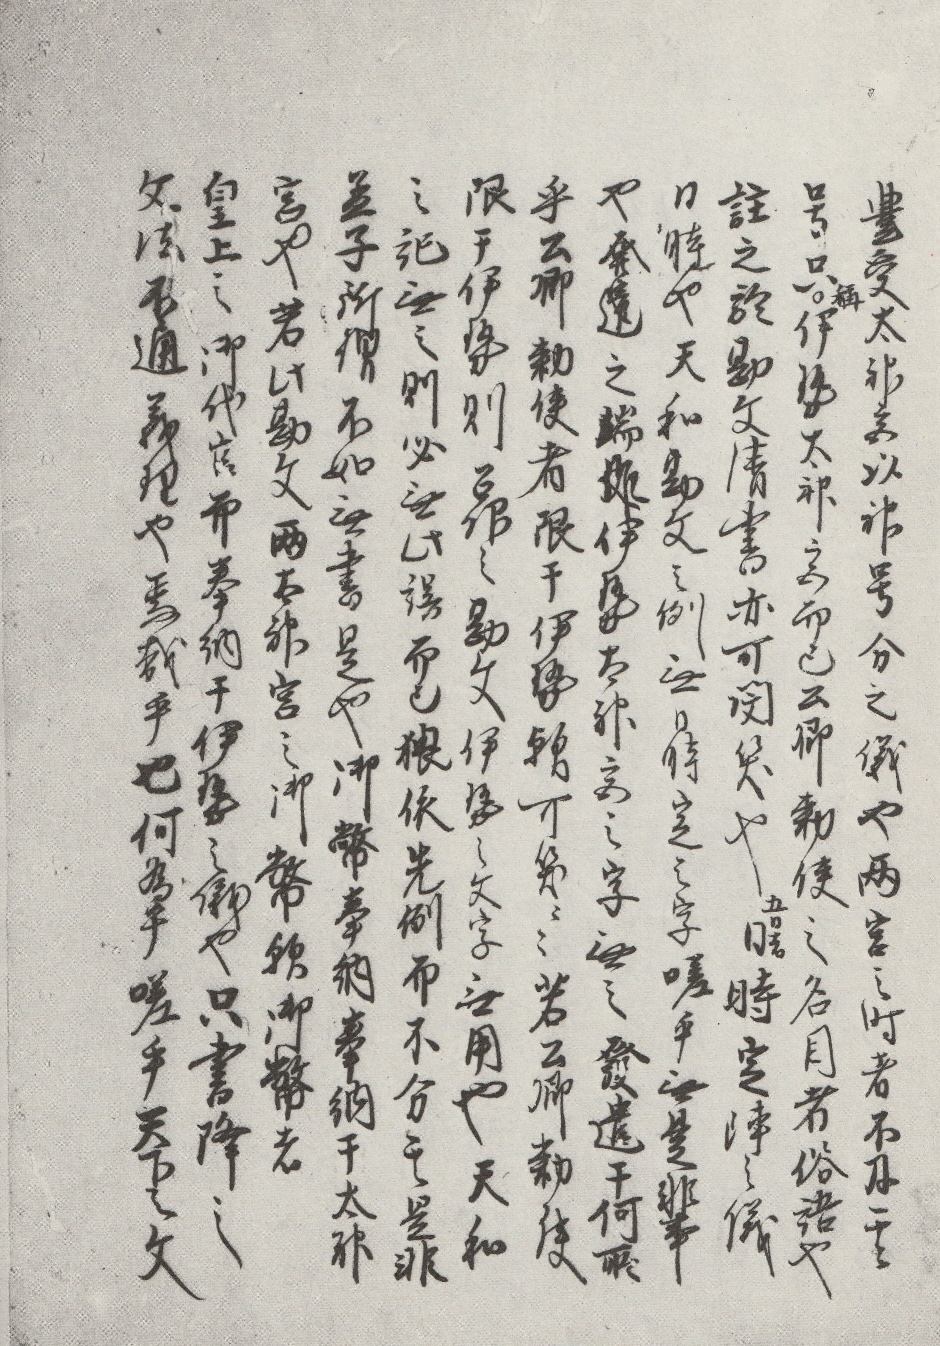 豊受太神宮以神号分之儀也両宮之時者不用其
号只稱伊勢太神宮而已公卿勅使之名目者俗諺也
註之於勘文清書亦可閇笑也 日時定陣之儀
日時也天和勘文之例無日時定之字嗟乎無是非事
也発遣之端雖伊勢太神宮之字無之發遣于何所
乎公卿勅使者限于伊勢歟可笑々々若公卿勅使
限于伊勢則之勘文伊勢之文字無用也天和
之記無之則必無此誤而已猥依先例而不分其是非
孟子所謂不如無書是也御幣奉納奉納于太神
宮也若此勘文両太神宮之御幣歟御幣者
皇上之御代官而奉納于伊勢之儀也只書降之
文法不通義理也焉哉乎也何為乎嗟乎天下之文